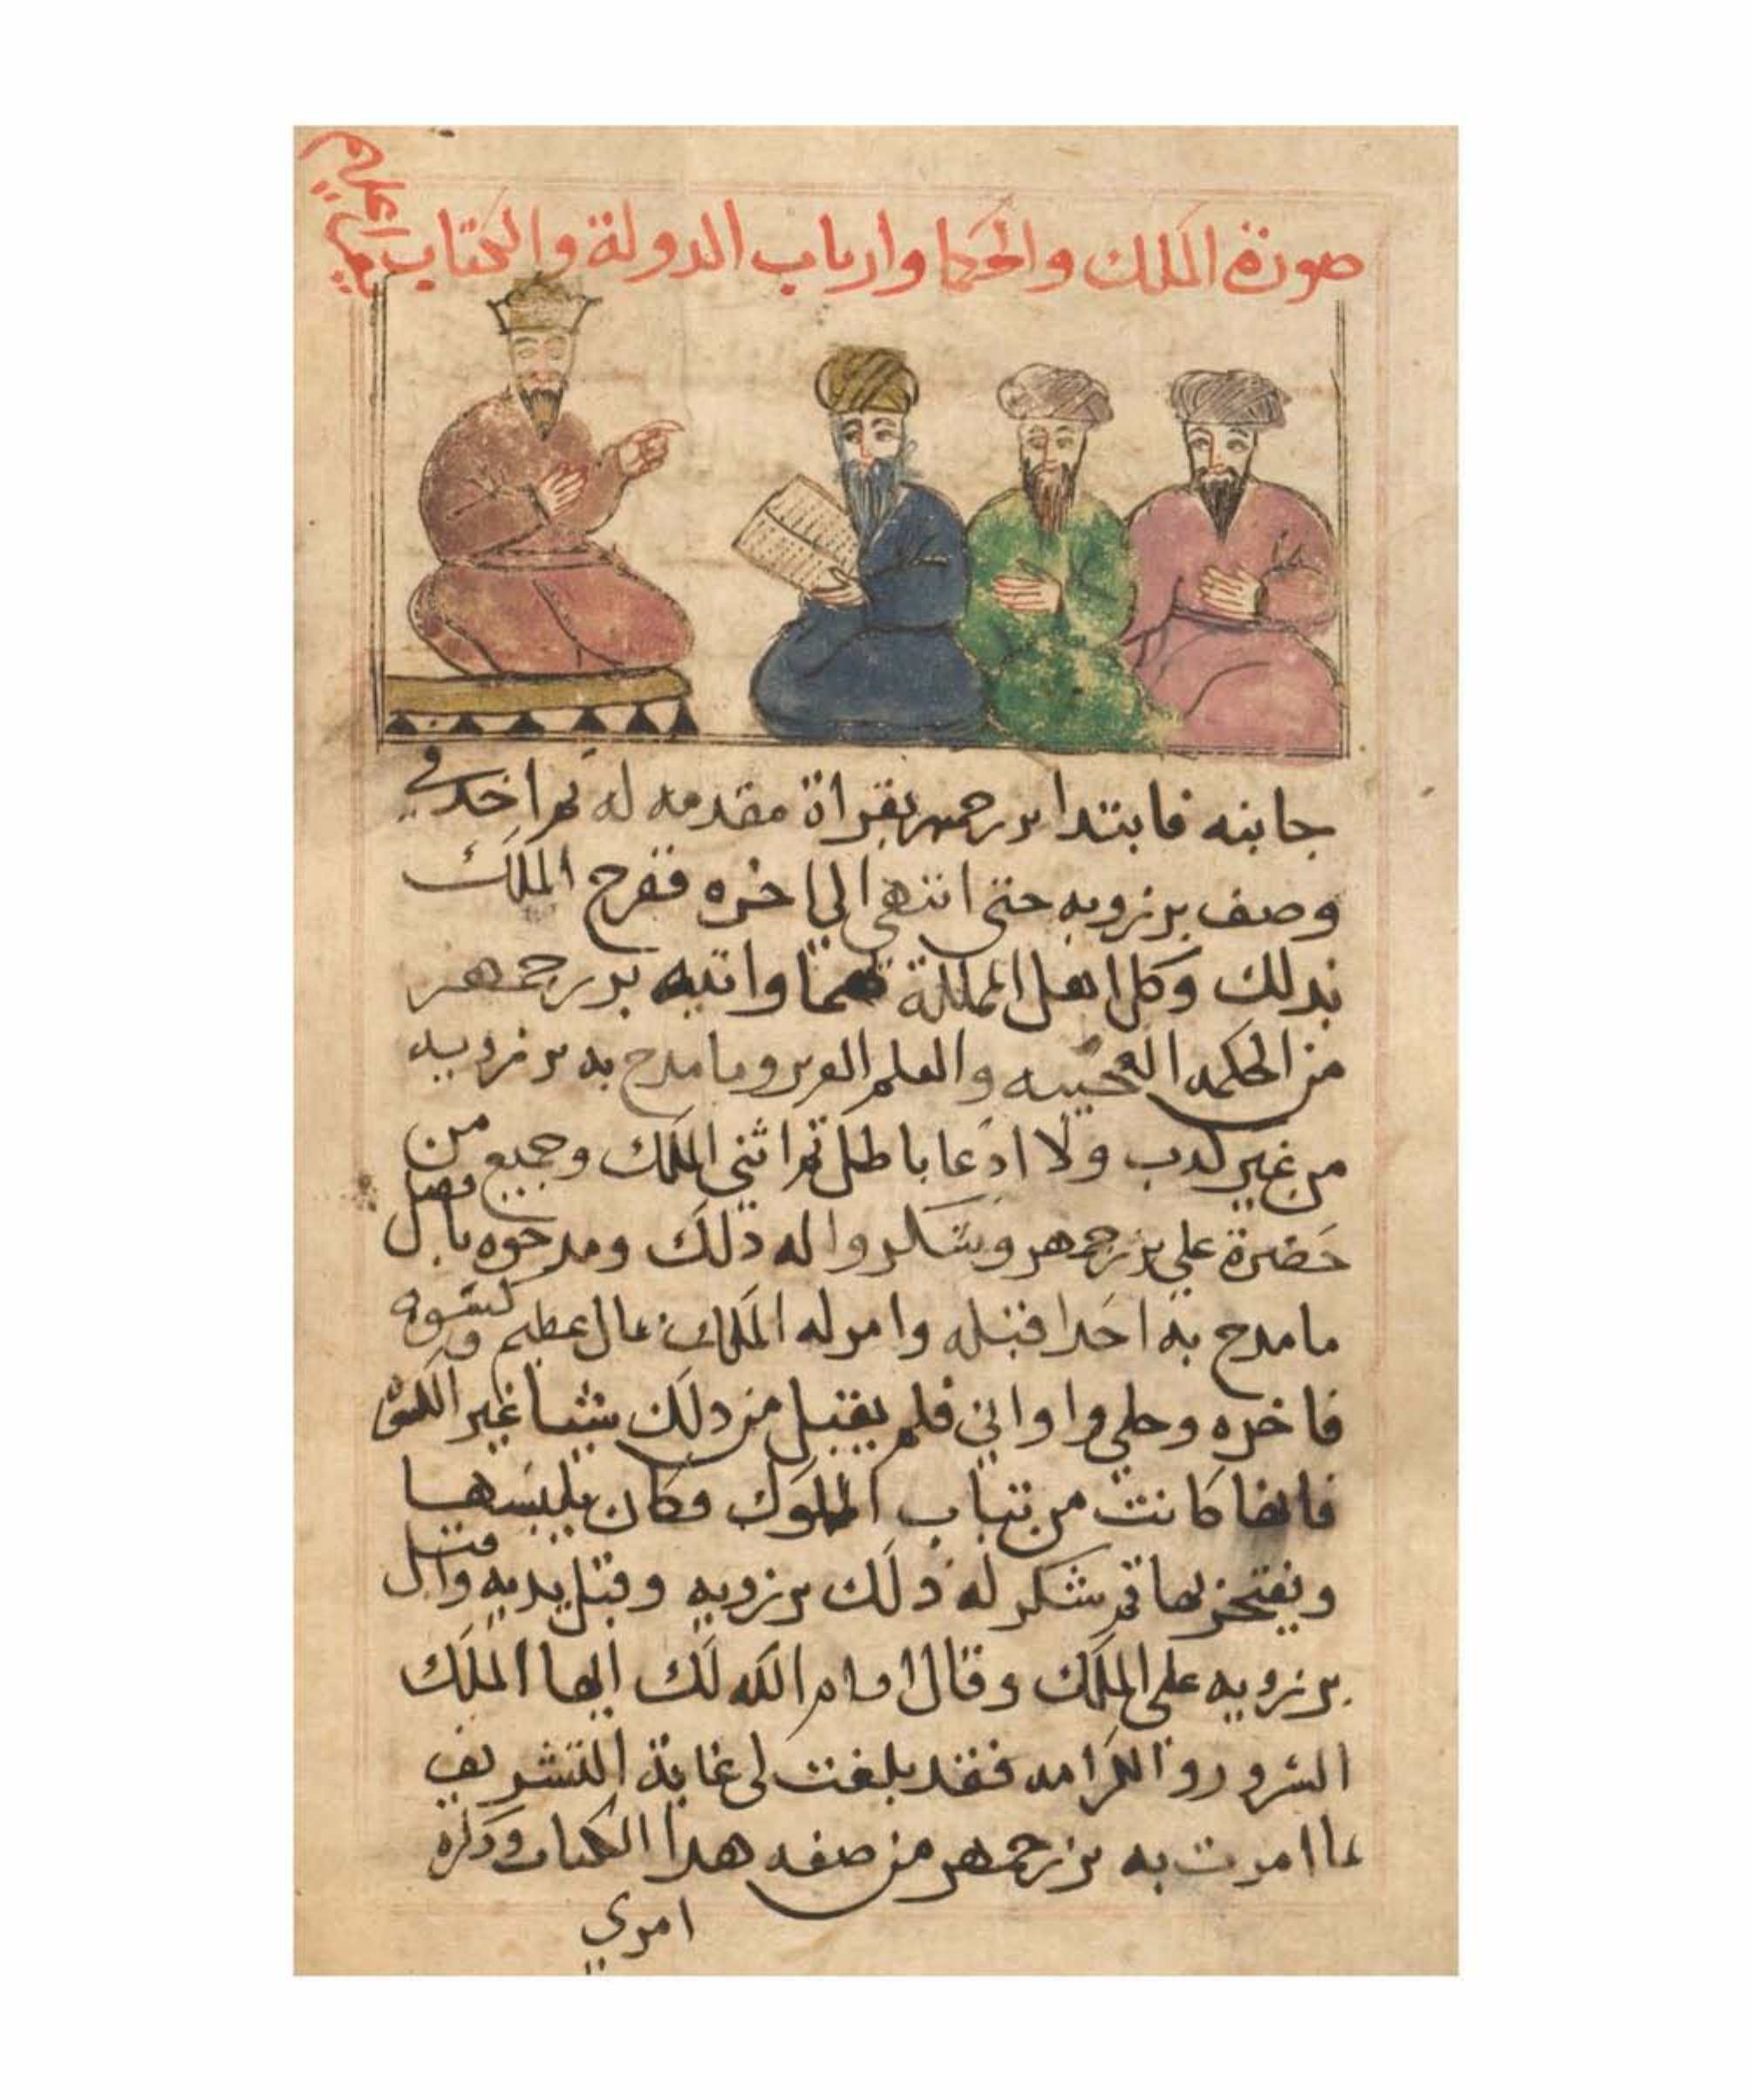 صورة الملك والحكما وارباب الدولة والكتاب
جانبه فابتدا بزرجمهر بقراة مقدمه له ثم اخد في
وصف برزويه حتى انتهى الي اخره ففرح الملك
بدلك وكل اهل المملكة مما واتيه بزرجمهر
من الحكمه العجيبه والعلم الغزير وما مدح به برزويه
من غير كدب ولا ادعا باطل ثم اثنى الملك وجميع من
حضرة علي بزرجمهر وشكروا له ذلك ومدحوه بافضل
ما مدح به احدا قبله وامر له الملك بمال عظيم وكسوه
فاخره وحلي واواني فلم يقبل من دلك شيا غير الكسوة
فانها كانت من تياب الملوك وكان يلبسها
ويفتخر بها ثم شكر له ذلك برزويه وقبل يديه واقبل
برزويه على الملك وقال ادام الله لك ايها الملك
السرور والكرامه فقد بلغت لي غاية التشريف
بما امرت به بزرجمهر من صفه هدا الكتاب ودكره
امري